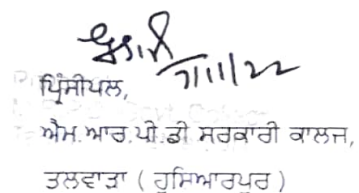 7/11/22
ਪ੍ਰਿੰਸੀਪਲ,
ਐਮ.ਆਰ.ਪੀ.ਡੀ ਸਰਕਾਰੀ ਕਾਲਜ,
ਤਲਵਾੜਾ ( ਹੁਸਿਆਰਪੁਰ )